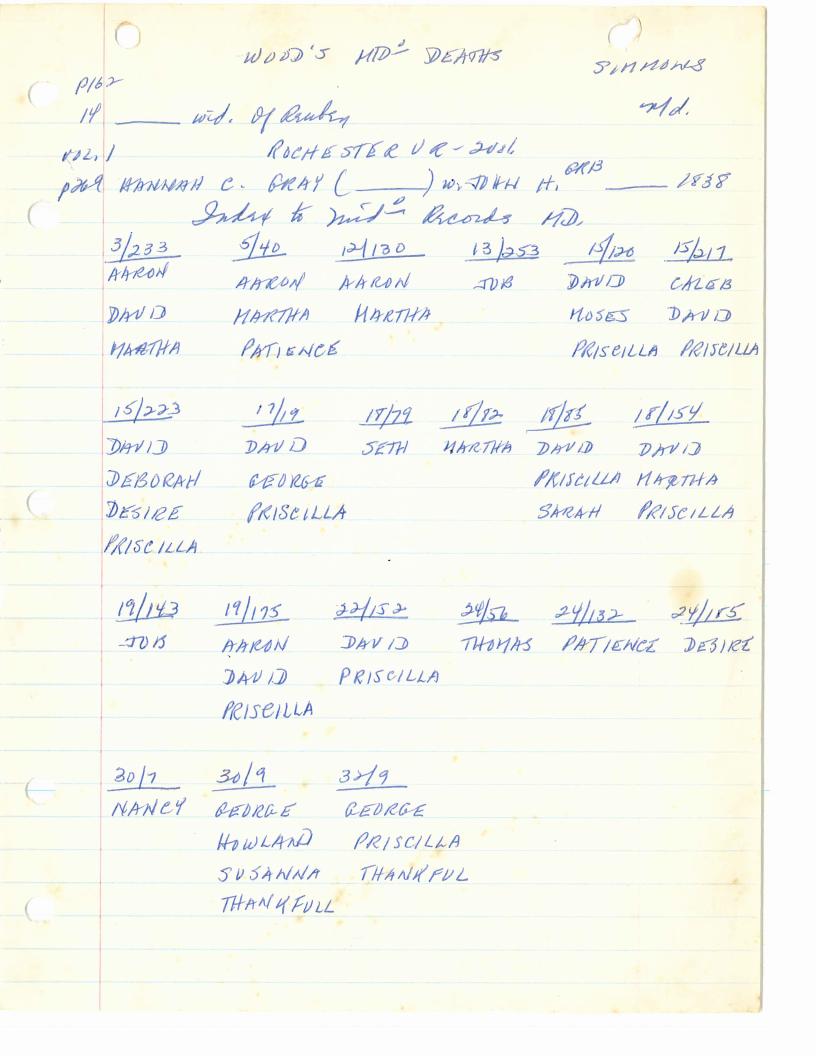 WOOD'S MID<sup>o</sup> DEATHS
SIMMONS
P162
Md.
14 ______ wid. Of Reuben
VOL. 1 ROCHESTER VR - 2vol.
p269 HANNAH C. GRAY (______) w. JOHN H. GRB ______ 1838
Index to Midᵒ Records MD.
3/233 5/40 12/130 13/253 15/120 15/217
AARON AARON AARON JOB DAVID CALEB
DAVID MARTHA MARTHA MOSES DAVID
MARTHA PATIENCE PRISCILLA PRISCILLA
15/223 17/19 18/79 18/82 18/85 18/154
DAVID DAVID SETH MARTHA DAVID DAVID
DEBORAH GEORGE PRISCILLA MARTHA
DESIRE PRISCILLA SARAH PRISCILLA
PRISCILLA
19/143 19/175 22/152 24/56 24/132 24/185
JOB AARON DAVID THOMAS PATIENCE DESIRE
DAVID PRISCILLA
PRISCILLA
30/7 30/9 32/9
NANCY GEORGE GEORGE
HOWLAND PRISCILLA
SUSANNA THANKFUL
THANKFULL